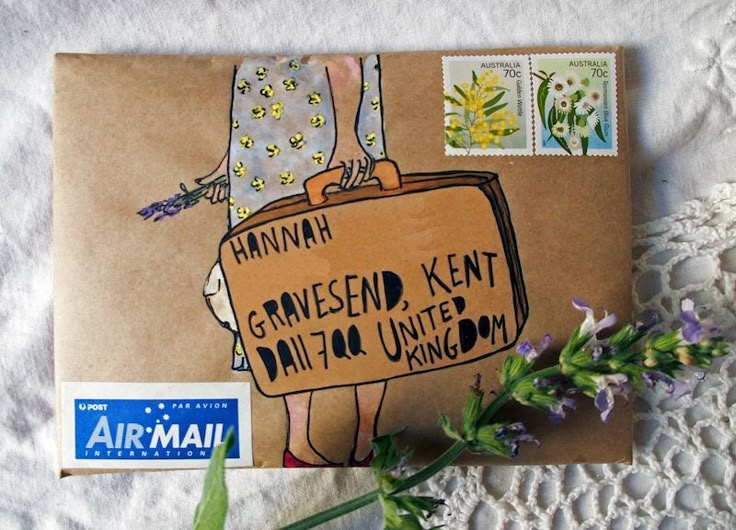 AUSTRALIA
70c
Golden Wattle
AUSTRALIA
70c
Tasmanian Blue Gum
HANNAH
GRAVESEND, KENT
DA11 7QQ UNITED
KINGDOM
POST PAR AVION
AIR MAIL
INTERNATIONAL